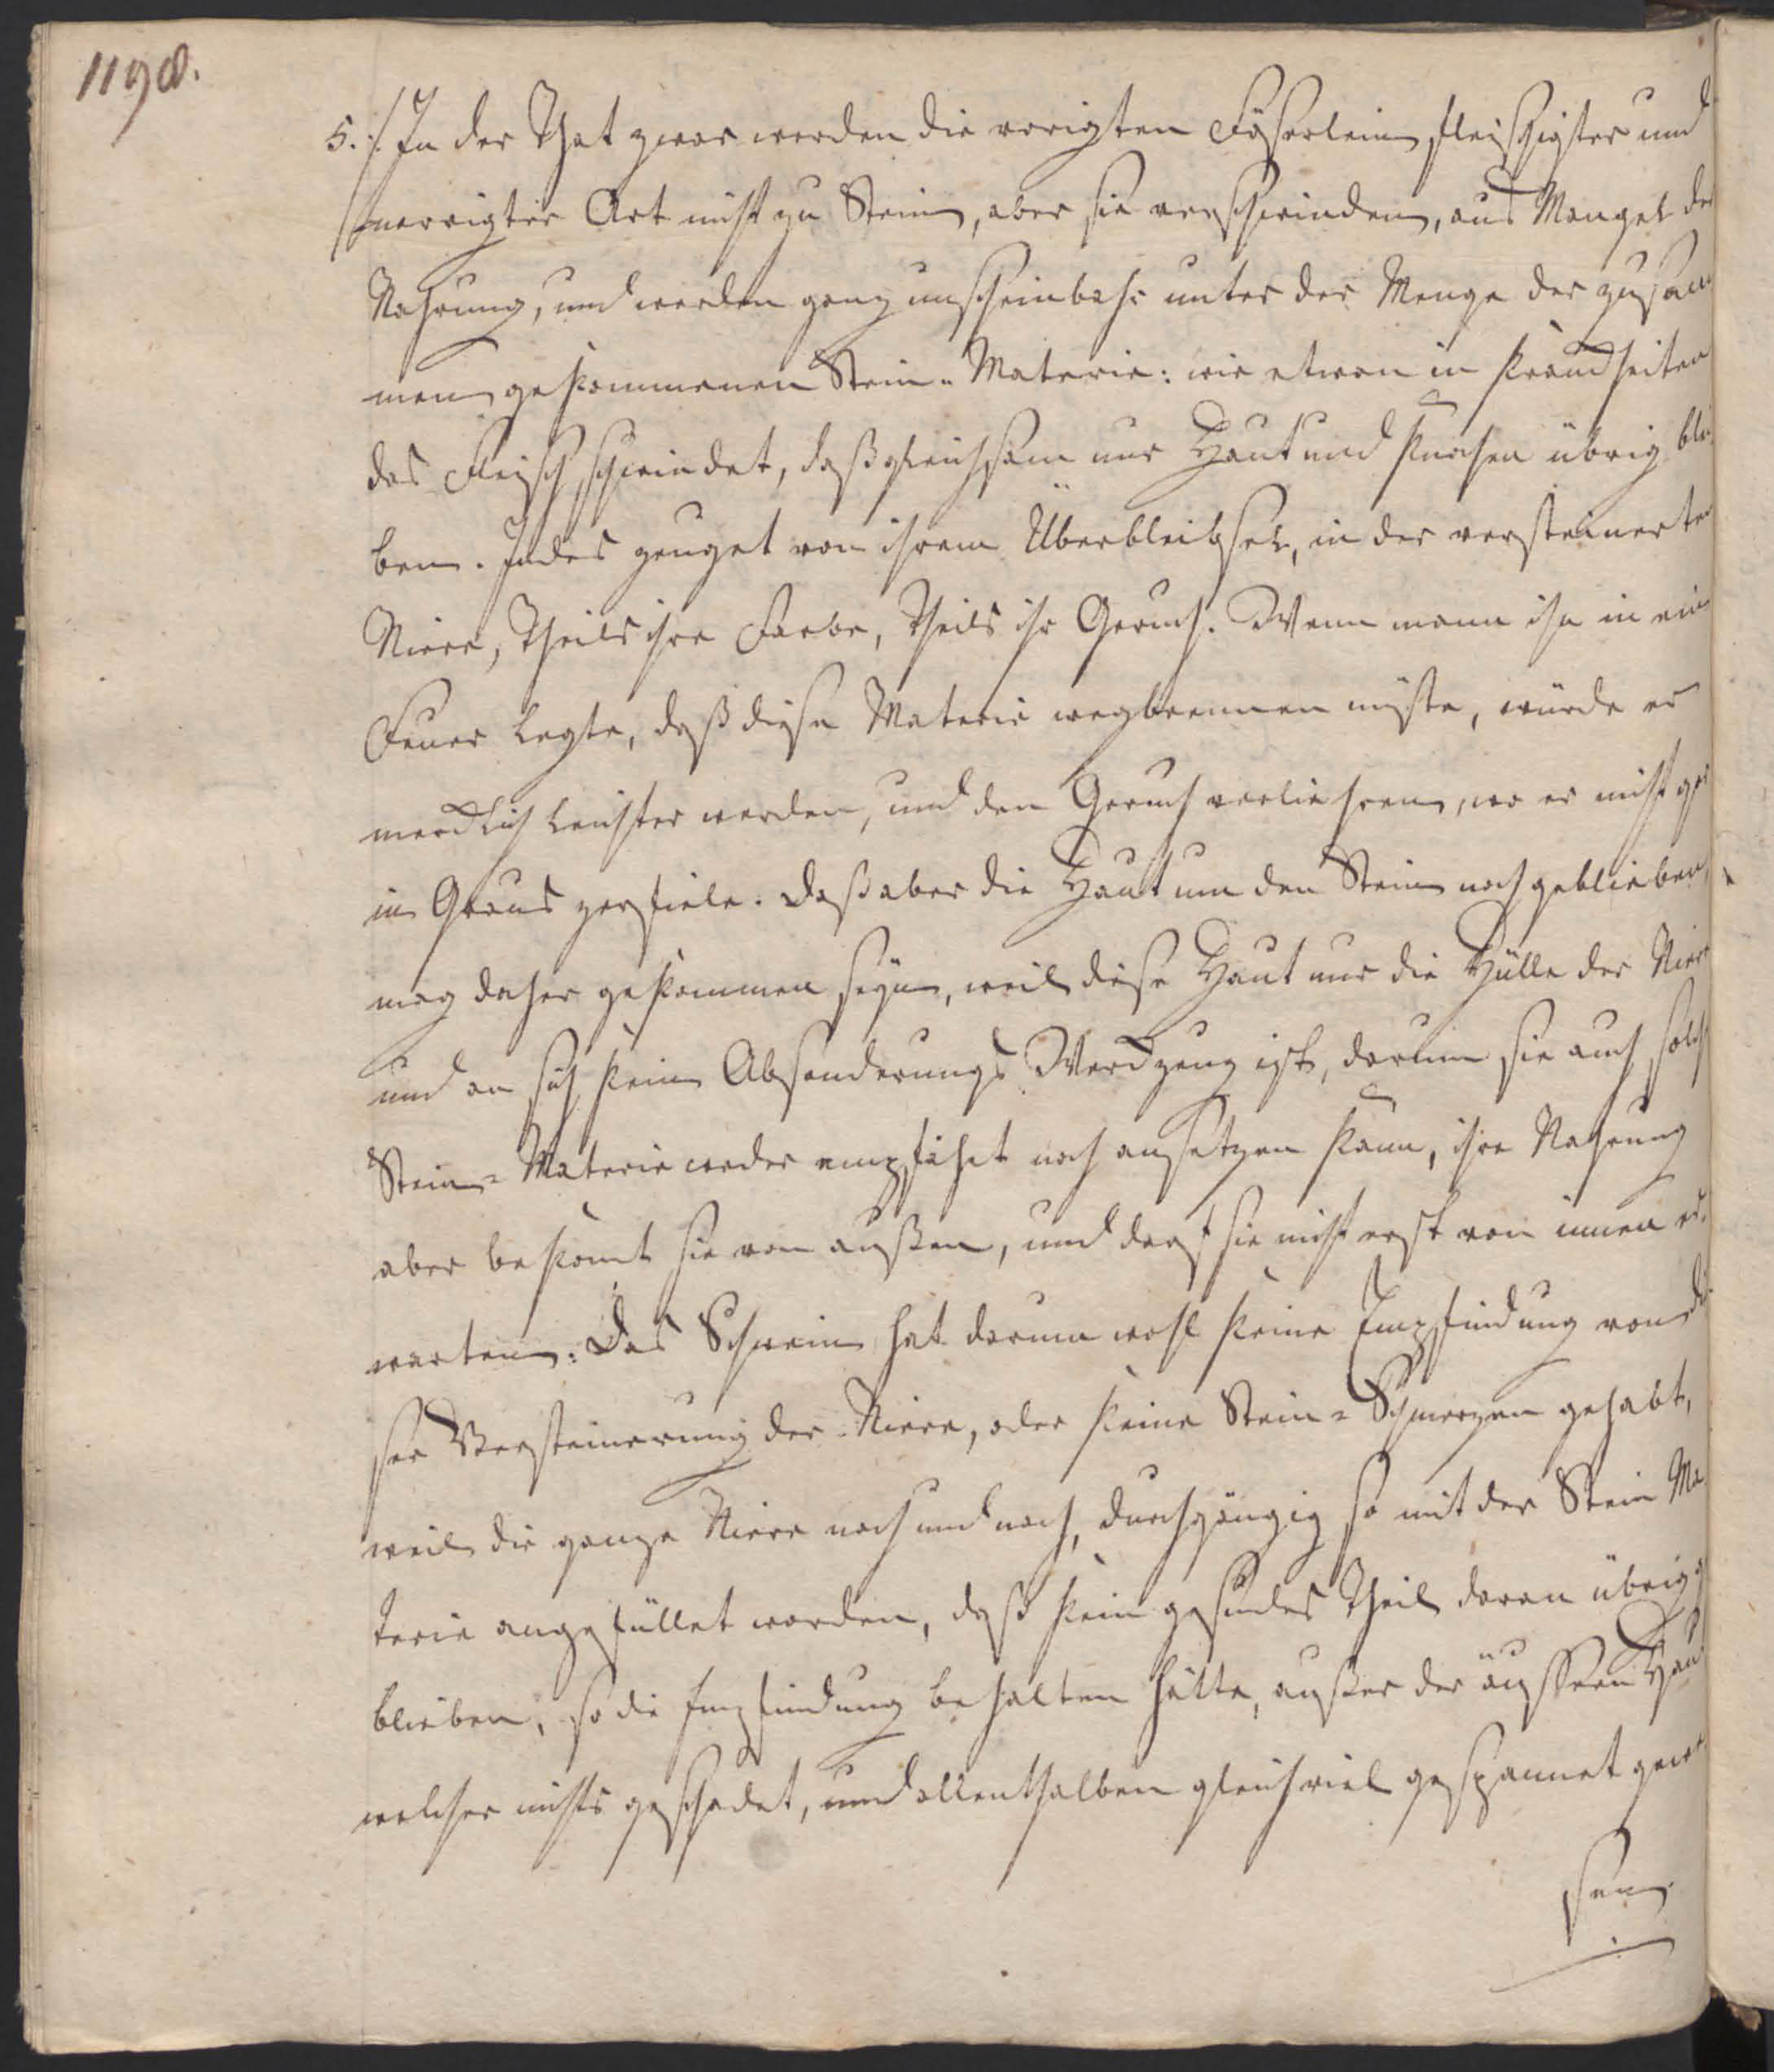 1198.
5. :/ In der That zwar werden die vorigten Fäserlein, fleischigter und
nervigter Art nicht zu Stein, aber sie verschwinden, aus Mangel der
Nahrung, und werden ganz unscheinbahr unter der Menge der zusam
men gekommenen Stein-Materie: wie etwan in Kranckheiten
das Fleisch schwindet, daß gleichsam nur Haut und Knochen übrig blei
ben. Indes zeuget von ihrem Überbleibsel, in der versteinerten
Niere, theils ihre Farbe, theils ihr Geruch. Wenn mann ihn in ein
Feuer legte, daß diese Materie wegbrennen müste, würde er
mercklich leichter werden, und den Geruch verliehren, wo er nicht gar
in Graus zerfiele. Daß aber die Haut um den Stein noch geblieben,
mag daher gekommen seyn, weil diese Haut nur die Hülle der Niere
und an sich kein Absonderungs Werckzeug ist, darum sie auch solche
Stein-Materie weder empfähet noch ansetzen kann, ihre Nahrung
aber bekomt sie von außen, und darf sie nicht erst von innen er,
warten. Das Schwein hat darum wohl keine Empfindung von die
ser Versteinerung der Niere, oder keine Stein-Schmerzen gehabt,
weil die ganze Niere nach und nach, durchgängig so mit der Stein Ma
terie angefüllet worden, daß kein gesundes Theil daran übrig ge
blieben, so die Empfindung behalten hätte, außer der äussern Haut
welcher nichts geschadet, und allenthalben gleich viel gespannet gewe
sen.